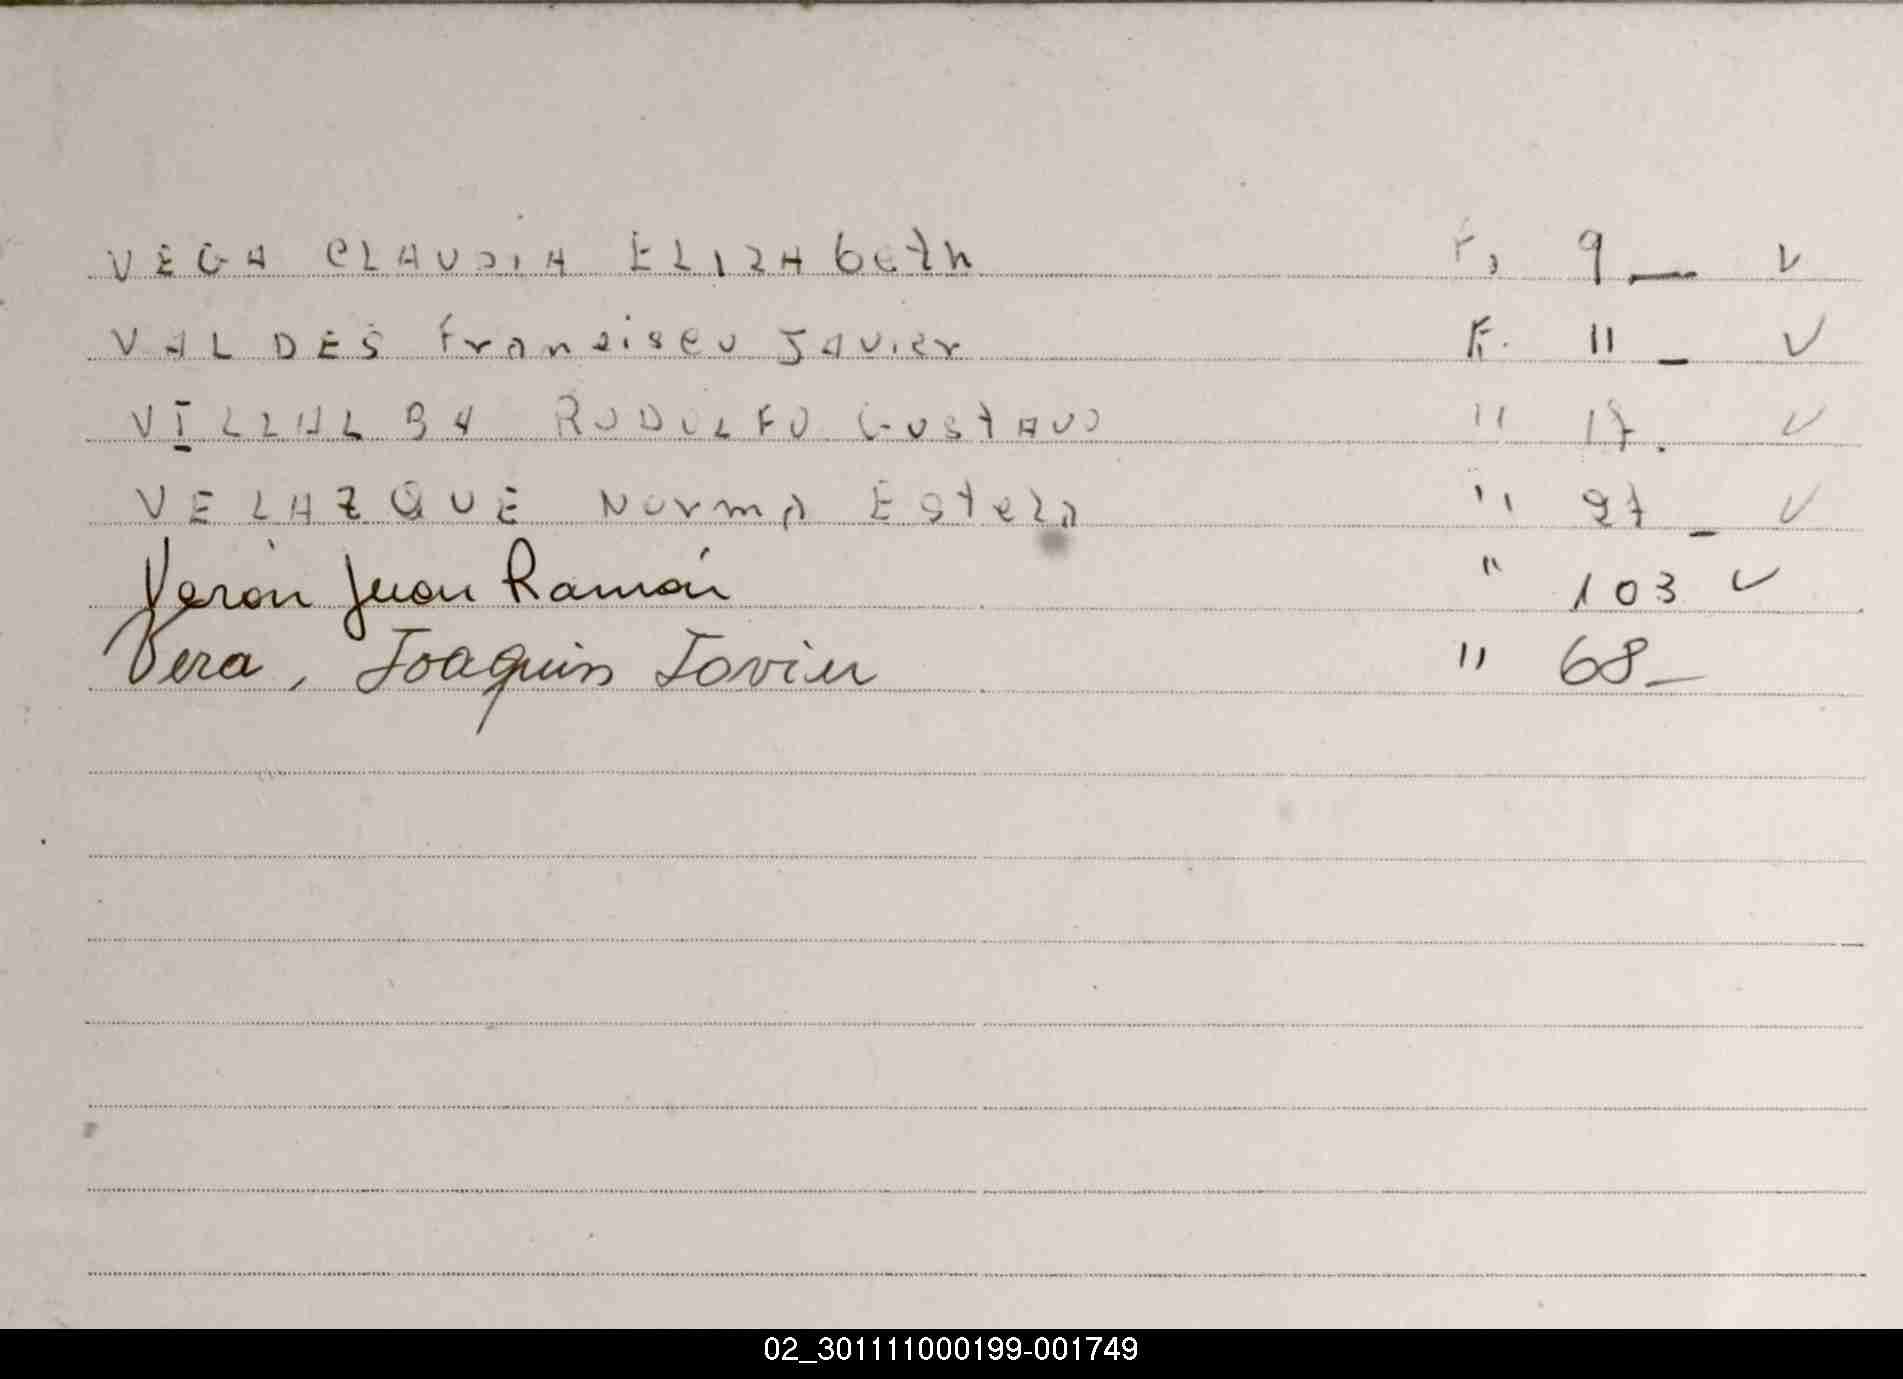 VEGA CLAUDIA ELIZABeth F, 9 — ✓
VALDES Francisco Javier F. 11 — ✓
VILLALBA RODOLFO GUSTAVO " 17. ✓
VELAZQUE Norma Estela " 97 — ✓
Verón Juan Ramón " 103 ✓
Vera, Joaquin Javier " 68 —
02_301111000199-001749